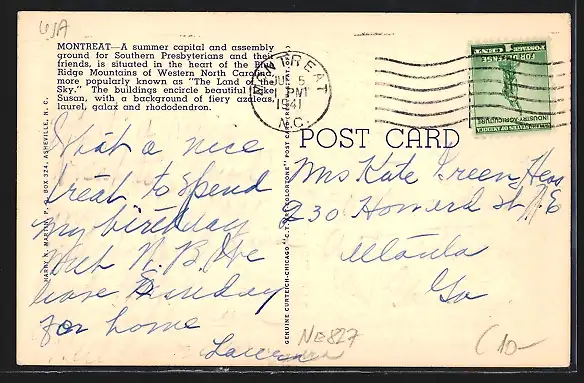 USA
MONTREAT—A summer capital and assembly
ground for Southern Presbyterians and their
friends, is situated in the heart of the Blue
Ridge Mountains of Western North Carolina,
more popularly known as "The Land of the
Sky." The buildings encircle beautiful Lake
Susan, with a background of fiery azaleas,
laurel, galax and rhododendron.
MONTREAT
JUL 5
PM
1941
N.C.
1 CENT 1
FOR DEFENSE
INDUSTRY AGRICULTURE
UNITED STATES OF AMERICA
HARRY N. MARTIN, P. O. BOX 324, ASHEVILLE, N. C.
GENUINE CURTEICH-CHICAGO "C.T. ART-COLORTONE" POST CARD
POST CARD
What a nice
treat to spend
my birthday
with N. B. We
leave Sunday
for home
Mrs Kate Green Hess
230 Howard St N E
Atlanta
Ga
NB827
10-